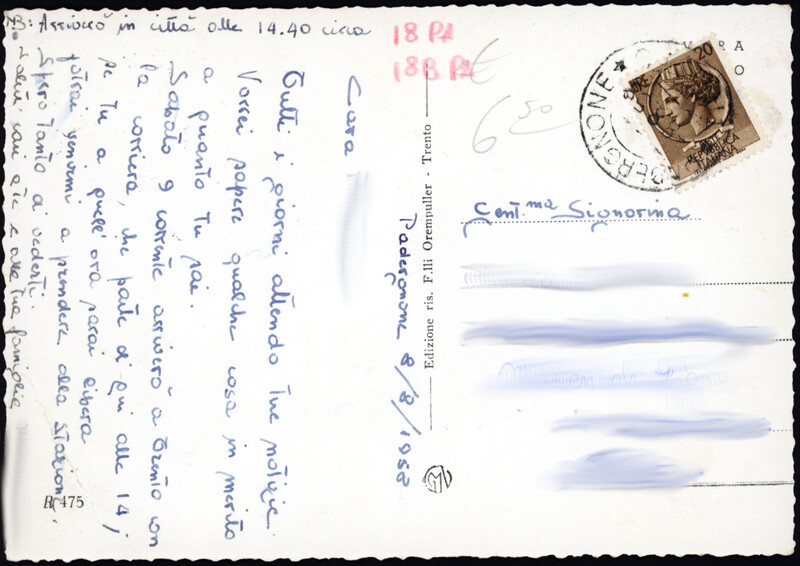 NB: Arriverò in città alle 14.40 circa
18 PA
18B PA
€
6 50
PADERGNONE
LIRE 20
REPUBBLICA ITALIANA
Gent.ma Signorina
Edizione ris. F.lli Orempuller - Trento
Padergnone 8/8/1958
Cara
Tutti i giorni attendo tue notizie.
Vorrei sapere qualche cosa in merito
a quanto tu sai.
Sabato 9 corrente arriverò a Trento con
la corriera, che parte di qui alle 14;
se tu a quell'ora sarai libera
potrai venirmi a prendere alla stazione.
Spero tanto di vederti.
Saluti cari a te e alla tua famiglia
R 475